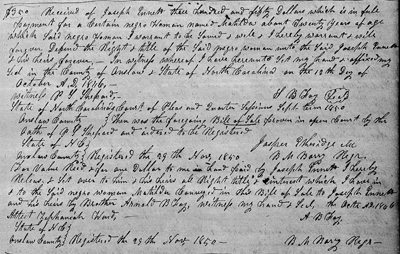 $350 Received of Joseph Ennett three hundred and fifty Dollars which is in full
payment for a Certain negro Woman named Matilda about Twenty Years of age
which Said negro Woman I warrant to be Sound & I hereby warrant & will
forever Defend the Right & title of the Said negro woman unto the Said Joseph Ennett
& his heirs forever, In witness whereof I have hereunto Set my hand & affixed my
Seal in the County of Onslow & State of North Carolina on the 12th Day of
October A.D. 1846,
Witness P. P. Shepard. B Day
State of North Carolina Court of Pleas and Quarter Sessions Sept term 1850
Onslow County Then was the foregoing Bill of Sale proven in open Court by the
Oath of P. P. Shepard and ordered to be Registered
State of N C Jasper Etheridge Clk
Onslow County Registered the 29th Nov 1850 B M Bary Regr.
For Value Recd for one Dollar to me in hand paid by Joseph Ennett I hereby
Release & Set over to him & his heirs all Right title & interest which I have in
& to the Said negro woman Matilda Conveyed in This Bill of Sale to Joseph Ennett
and his heirs by Brother Arnold B Day, witness my hand & Seal, the 1846
Attest Zephaniah A B Day
State of N C
Onslow County Registered the 29th Nov 1850 B. M Bary Regr